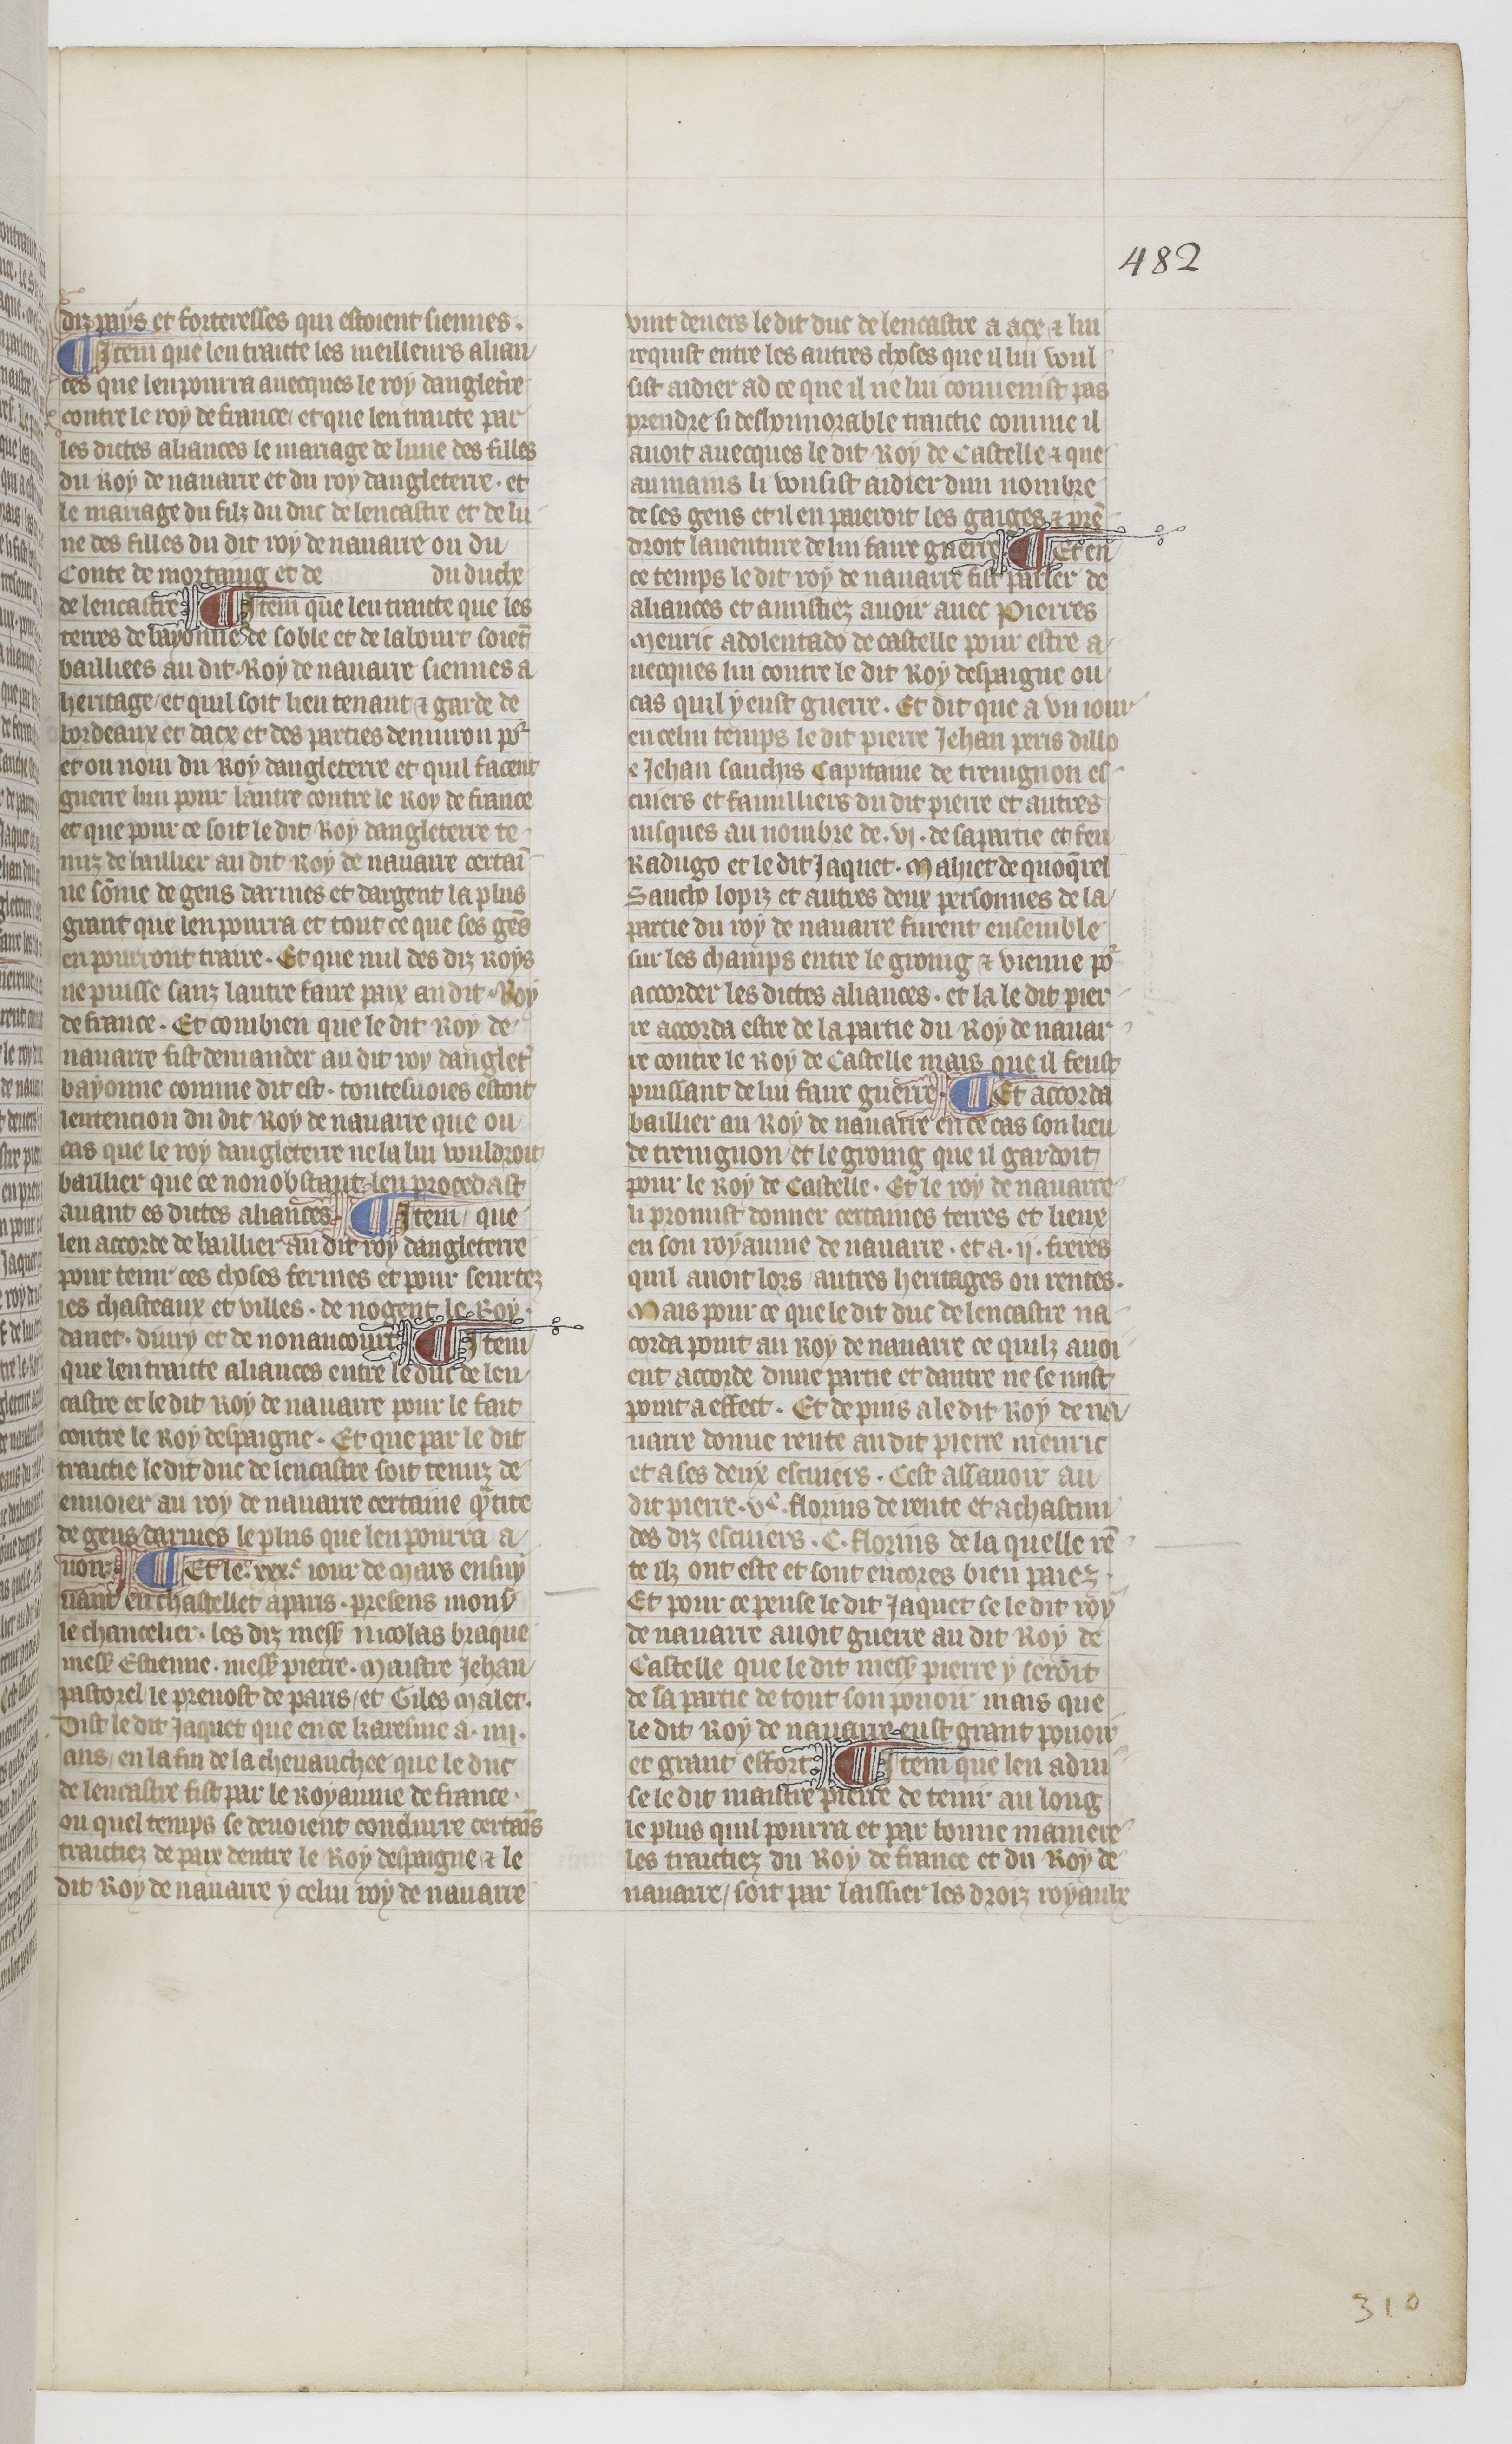 482
diz pays et forteresses qui estoient siennes.
¶ Item que len traicte les meilleurs alian
ces que len pourra auecques le roy dangleterre
contre le roy de france/ et que len traicte par
les dictes aliances le mariage de lune des filles
du Roy de nauarre et du roy dangleterre. et
le mariage du filz du duc de lencastre et de lu
ne des filles du dit roy de nauarre ou du
Conte de mortaing et de du duche
de lencastre ¶ Item que len traicte que les
terres de bayonne de soble et de labourt soiēt
bailliees au dit Roy de nauarre siennes a
heritage/ et quil soit lieu tenant & garde de
bordeaux et dacx et des parties denuiron po͛
et ou nom du Roy dangleterre et quil facent
guerre lun pour lautre contre le Roy de france
et que pour ce soit le dit Roy dangleterre te-
nuz de baillier au dit Roy de nauarre certai-
ne sōme de gens darmes et dargent la plus
grant que len pourra et tout ce que ses gēs
en pourront traire. Et que nul des diz Roys
ne puisse sanz lautre faire paix au dit Roy
de france. Et combien que le dit Roy de
nauarre fist demander au dit roy danglet͛
bayonne comme dit est. toutesuoies estoit
lentencion du dit Roy de nauarre que ou
cas que le roy dangleterre ne la lui vouldroit
baillier que ce non obstant len procedast
auant es dictes aliances ¶ Item/ que
len accorde de baillier au dit roy dangleterre
pour tenir ces choses fermes et pour seurtez
les chasteaux et villes. de nogent le Roy.
danet. diury et de nonaucourt ¶ Item
que len traicte aliances entre le duc de len
castre et le dit Roy de nauarre pour le fait
contre le Roy despaigne. Et que par le dit
traictie le dit duc de lencastre soit tenuz de
enuoier au roy de nauarre certaine q̄tite
de gens darmes le plus que len pourra a
uoir ¶ Et le. xxx.e iour de Mars ensuy
uant en chastellet a paris. presens mons͛
le chancelier. les diz mess͛ nicolas braque
mess͛ Estienne. mess͛ pierre. Maistre Jehan
pastorel le preuost de paris/ et Giles Malet.
Dist le dit Jaquet que en ce karesme a. iiij.
ans/ en la fin de la cheuauchee que le duc
de lencastre fist par le Royaume de france.
ou quel temps se deuoient conclurre certaīs
traictiez de paix dentre le Roy despaigne & le
dit Roy de nauarre y celui roy de nauarre
vint deuers le dit duc de lencastre a acx & lui
requist entre les autres choses que il lui voul
sist aidier ad ce que il ne lui conuenist pas
prendre si deshonnorable traictie comme il
auoit auecques le dit Roy de Castelle & que
au mains li vousist aidier dun nombre
de ses gens et il en paieroit les gaiges & prē
droit lauenture de lui faire guerre ¶ Et en
ce temps le dit roy de nauarre fist parler de
aliances et amistiez auoir auec Pierres
Meuric adolentado de castelle pour estre a
uecques lui contre le dit Roy despaigne ou
cas quil y eust guerre. Et dit que a vn iour
en celui temps le dit pierre Jehan peris dillo
e Jehan sauchis Capitaine de treuignon es-
cuiers et familliers du dit pierre et autres
iusques au nombre de. vj. de sa partie et feu
Radugo et le dit Jaquet. Mahiet de quoq̄rel
Saucho lopiz et autres deux personnes de la
partie du roy de nauarre furent ensemble
sur les champs entre le groing & vienne po͛
accorder les dictes aliances. et la le dit pier
re accorda estre de la partie du Roy de nauar
re contre le Roy de Castelle mais que il feust
puissant de lui faire guerre. ¶ Et accorda
baillier au Roy de nauarre en ce cas son lieu
de treuignon/ et le groing que il gardoit
pour le Roy de Castelle. Et le roy de nauarre
li promist donner certaines terres et lieux
en son royaume de nauarre. et a. ij. freres
quil auoit lors/ autres heritages ou rentes.
Mais pour ce que le dit duc de lencastre na
corda point au Roy de nauarre ce quilz auoi-
ent accorde dune partie et dautre ne se mist
point a effect. Et depuis a le dit Roy de na
uarre donne rente au dit pierre meuric
et a ses deux escuiers. Cest assauoir au
dit pierre. v.c florins de rente et a chascun
des diz escuiers. C. florins de la quelle rē
te ilz ont este et sont encores bien paiez.
Et pour ce pense le dit Jaquet se le dit roy
de nauarre auoit guerre au dit Roy de
Castelle que le dit mess͛ pierre y seroit
de sa partie de tout son pouoir mais que
le dit Roy de nauarre eust grant pouoir
et grant effort. ¶ Item que len adui
se le dit maistre pierre de tenir au long
le plus quil pourra et par bonne maniere
les traictiez du Roy de france et du Roy de
nauarre/ soit par laissier les droiz royaulx
310